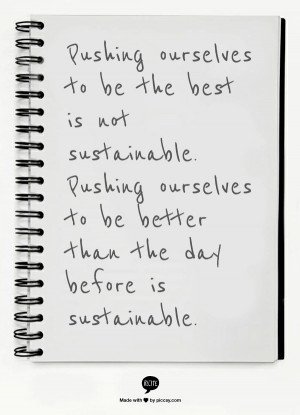 Pushing ourselves
to be the best
is not
sustainable.
Pushing ourselves
to be better
than the day
before is
sustainable.
RECITE
Made with ♥ by piccsy.com